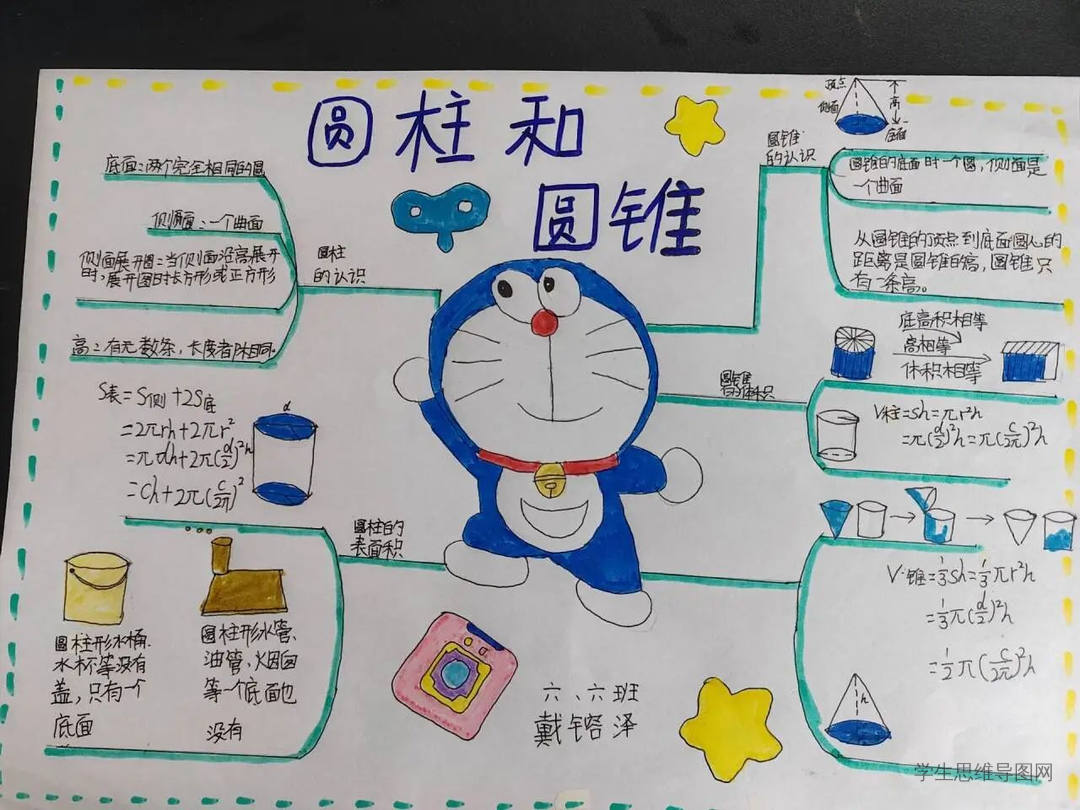 圆柱和
圆锥
圆柱
的认识
底面：两个完全相同的圆
侧面：一个曲面
侧面展开图：当侧面沿高展开
时，展开图时长方形或正方形
高：有无数条，长度都相同
S表=S侧+2S底
=2πrh+2πr²
=πdh+2π(d/2)²h
=Ch+2π(C/2π)²
d
h
圆柱的
表面积
圆柱形水桶、
水杯等没有
盖，只有一个
底面
圆柱形水管、
油管、烟囱
等一个底面也
没有
圆锥
的认识
顶点
侧面
高
圆锥的底面时一个圆，侧面是
一个曲面
从圆锥的顶点到底面圆心的
距离是圆锥的高，圆锥只
有一条高。
底高积相等
高相等
体积相等
V柱=sh=πr²h
=π(d/2)²h=π(C/2π)²h
V锥=1/3sh=1/3πr²h
=1/3π(d/2)²h
=1/2π(C/2π)²h
h
六、六班
学生思维导图网